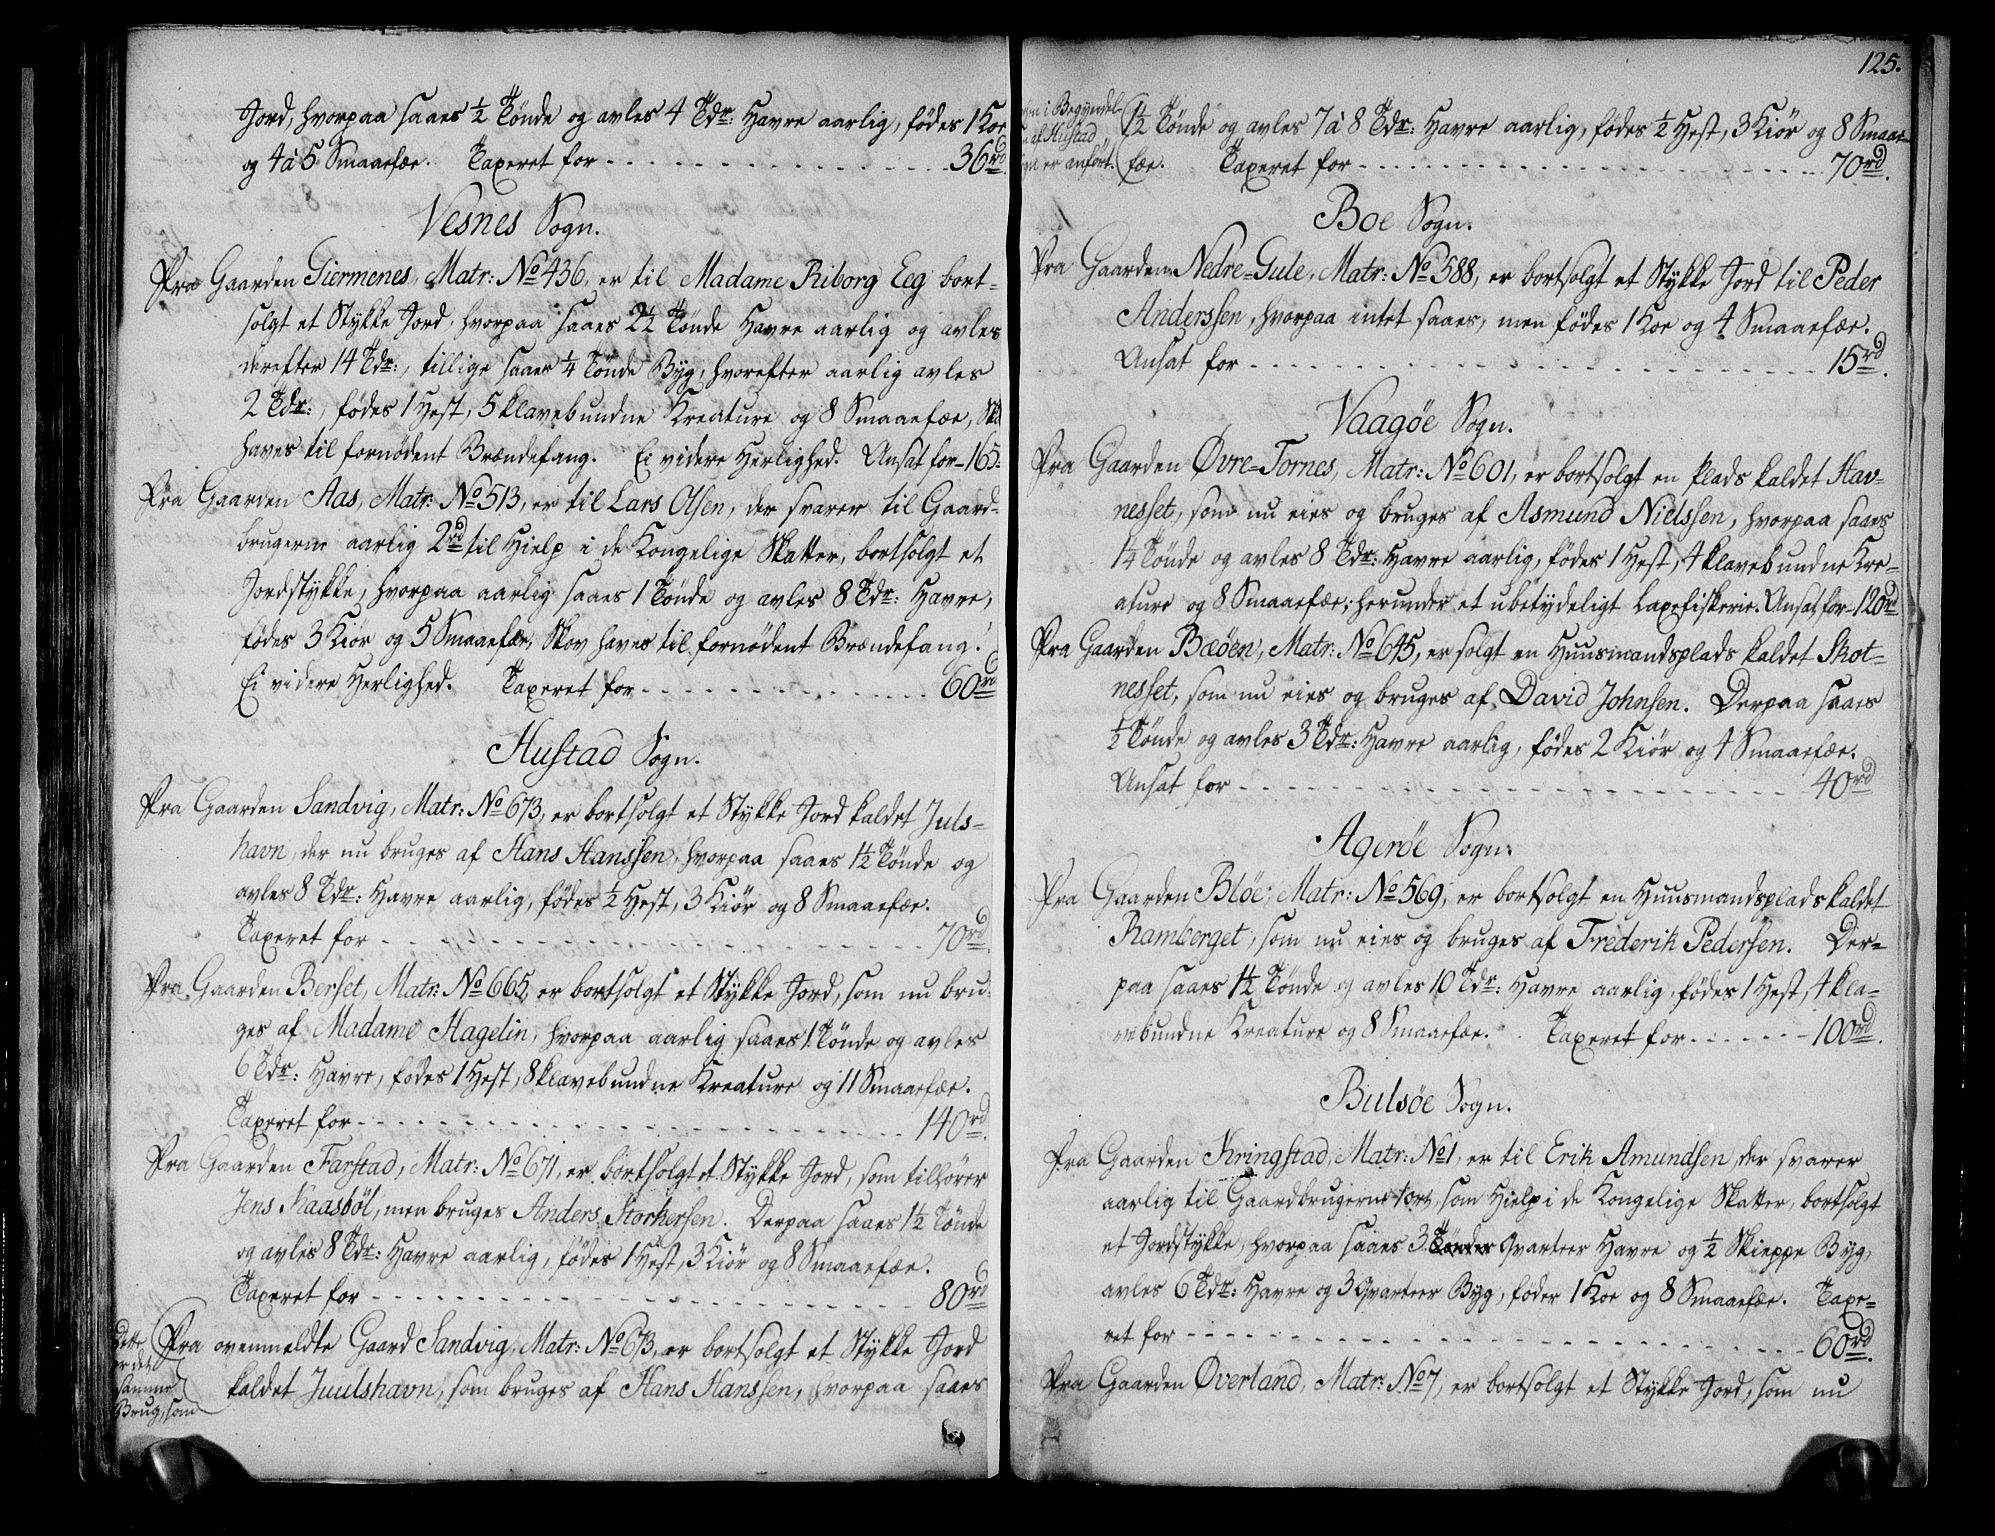 Jord, hvorpaa saaes ½ Tönde og avles 4 Tdr: Havre aarlig, födes 1 Koe
og 4 à 5 Smaaefæe. Taxeret for - - - 36rd
Vesnes Sogn.
Fra Gaarden Giermenes, Matr: No 436, er til Madame Riborg Eeg bort-
solgt et Stykke Jord, hvorpaa saaes 2½ Tönde Havre aarlig og avles
derefter 14 Tdr:, tillige saaes ¼ Tönde Byg, hvorefter aarlig avles
2 Tdr:, födes 1 Hest, 5 klavebundne Kreature og 8 Smaaefæe,
haves til fornödent Brændefang. Ei videre Herlighed. Ansat for - 165
Fra Gaarden Aas, Matr: No 513, er til Lars Olsen, der svarer til Gaard-
brugerne aarlig 2rd til Hielp i de Kongelige Skatter, bortsolgt et
Jordstykke, hvorpaa aarlig saaes 1 Tönde og avles 8 Tdr: Havre,
födes 3 Kiör og 5 Smaaefæe, Skov haves til fornödent Brændefang.
Ei videre Herlighed. Taxeret for - - - 60rd
Hustad Sogn.
Fra Gaarden Sandvig, Matr: No 673, er bortsolgt et Stykke Jord kaldet Juls-
havn, der nu bruges af Hans Hanssen, hvorpaa saaes 1½ Tönde og
avles 8 Tdr: Havre aarlig, födes ½ Hest, 3 Kiör og 8 Smaaefæe.
Taxeret for - - - 70rd
Fra Gaarden Berset, Matr: No 665, er bortsolgt et Stykke Jord, som nu bru-
ges af Madame Hagelin, hvorpaa aarlig saaes 1 Tönde og avles
6 Tdr: Havre, födes 1 Hest, 8 klavebundne Kreature og 11 Smaaefæe.
Taxeret for - - - 140rd.
Fra Gaarden Farstad, Matr: No 671, er bortsolgt et Stykke Jord, som tilhörer
Jens Kaasböl, men bruges Anders Storkersen. Derpaa saaes 1½ Tönde
og avles 8 Tdr: Havre aarlig, födes 1 Hest, 3 Kiör og 8 Smaaefæe.
Taxeret for - - - 80rd
Fra ovenmeldte Gaard Sandvig, Matr: No 673, er bortsolgt et Stykke Jord
kaldet Juulshavn, som bruges af Hans Hanssen, hvorpaa saaes
Dette
er det
samme
Brug, som
125.
i Begyndel-
af Hustad
er anfört.
1½ Tönde og avles 7 à 8 Tdr: Havre aarlig, födes ½ Hest, 3 Kiör og 8 Smaae-
fæe. Taxeret for - - - 70rd.
Boe Sogn.
Fra Gaarden Nedre-Gule, Matr: No 588, er bortsolgt et Stykke Jord til Peder
Anderssen, hvorpaa intet saaes, men födes 1 Koe og 4 Smaaefæe.
Ansat for - - - 15rd.
Vaagöe Sogn.
Fra Gaarden Øvre-Tornes, Matr: No 601, er bortsolgt en Plads kaldet Hav-
nesset, som nu eies og bruges af Asmund Nielssen, hvorpaa saaes
1¼ Tönde og avles 8 Tdr: Havre aarlig, födes 1 Hest, 4 klavebundne Kre-
ature og 8 Smaaefæe; herunder et ubetydeligt Laxefiskerie. Ansat for - 120rd
Fra Gaarden Bæöen, Matr: No 645, er solgt en Huusmandsplads kaldet Skot-
nesset, som nu eies og bruges af David Johnsen. Derpaa saaes
½ Tönde og avles 3 Tdr: Havre aarlig, födes 2 Kiör og 4 Smaaefæe.
Ansat for - - - 40rd
Ageröe Sogn.
Fra Gaarden Blöe, Matr: No 569, er bortsolgt en Huusmandsplads kaldet
Ramberget, som nu eies og bruges af Frederik Pedersen. Der-
paa saaes 1½ Tönde og avles 10 Tdr: Havre aarlig, födes 1 Hest, 4 kla-
vebundne Kreature og 8 Smaaefæe. Taxeret for - - - 100rd.
Bulsöe Sogn.
Fra Gaarden Kringstad, Matr: No 1, er til Erik Amundsen, der svarer
aarlig til Gaardbrugerne 1ort, som Hielp i de Kongelige Skatter, bortsolgt
et Jordstykke, hvorpaa saaes 3 Tönder Qvarteer Havre og ½ Skieppe Byg,
avles 6 Tdr: Havre og 3 Qvarteer Byg, föder 1 Koe og 8 Smaaefæe. Taxe-
ret for - - - 60rd.
Fra Gaarden Øverland, Matr: No 7, er bortsolgt et Stykke Jord, som nu